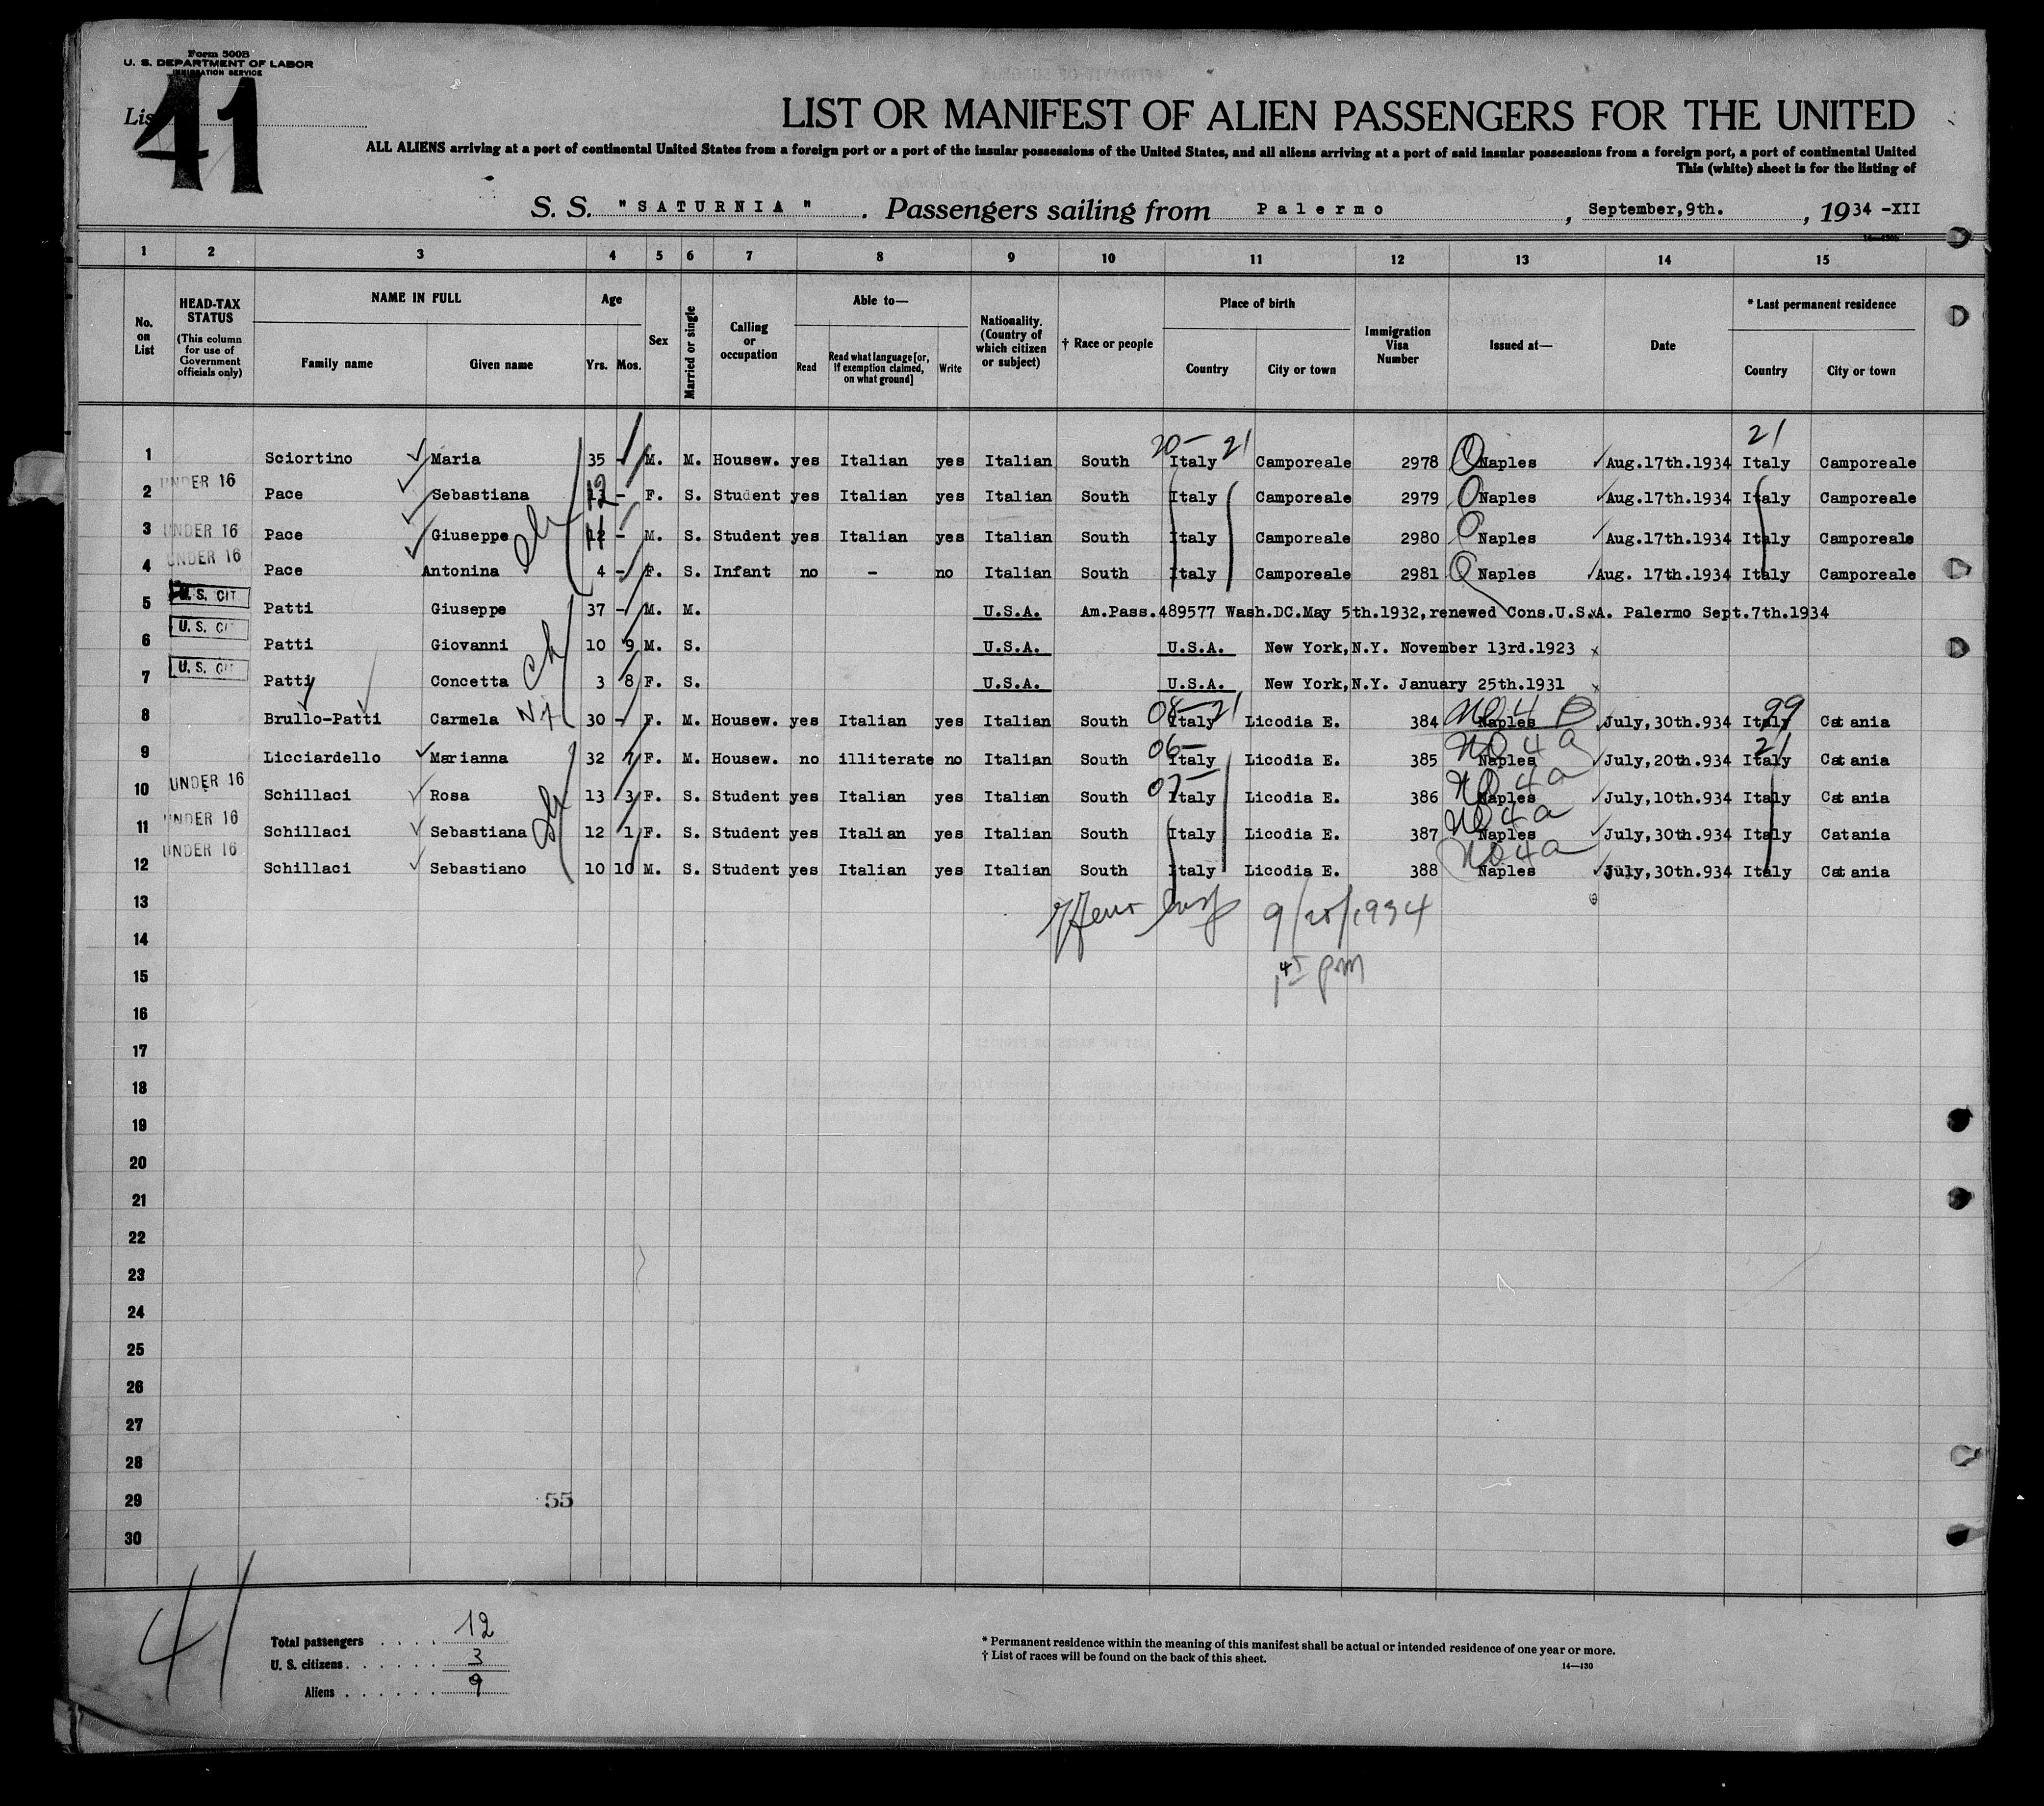 Form 500B
U. S. DEPARTMENT OF LABOR
IMMIGRATION SERVICE
List 41
LIST OR MANIFEST OF ALIEN PASSENGERS FOR THE UNITED
ALL ALIENS arriving at a port of continental United States from a foreign port or a port of the insular possessions of the United States, and all aliens arriving at a port of said insular possessions from a foreign port, a port of continental United
This (white) sheet is for the listing of
S. S. "SATURNIA". Passengers sailing from Palermo, September,9th., 1934 -XII
1 2 3 4 5 6 7 8 9 10 11 12 13 14 15
No. on List
HEAD-TAX STATUS
(This column for use of Government officials only)
NAME IN FULL
Family name Given name
Age
Yrs. Mos.
Sex
Married or single
Calling or occupation
Able to—
Read
Read what language [or, if exemption claimed, on what ground]
Write
Nationality. (Country of which citizen or subject)
† Race or people
Place of birth
Country City or town
Immigration Visa Number
Issued at—
Date
* Last permanent residence
Country City or town
20- 21 21
1 Sciortino Maria 35 - M. M. Housew. yes Italian yes Italian South Italy Camporeale 2978 Naples Aug.17th.1934 Italy Camporeale
2 UNDER 16 Pace Sebastiana 12 - F. S. Student yes Italian yes Italian South Italy Camporeale 2979 Naples Aug.17th.1934 Italy Camporeale
3 UNDER 16 Pace Giuseppe 11 - M. S. Student yes Italian yes Italian South Italy Camporeale 2980 Naples Aug.17th.1934 Italy Camporeale
4 UNDER 16 Pace Antonina 4 - F. S. Infant no - no Italian South Italy Camporeale 2981 Naples Aug. 17th.1934 Italy Camporeale
5 U.S. CIT. Patti Giuseppe 37 - M. M. U.S.A. Am.Pass.489577 Wash.DC.May 5th.1932,renewed Cons.U.S.A. Palermo Sept.7th.1934
6 U.S. CIT Patti Giovanni 10 9 M. S. U.S.A. U.S.A. New York,N.Y. November 13rd.1923 x
7 U.S. CIT Patti Concetta 3 8 F. S. U.S.A. U.S.A. New York,N.Y. January 25th.1931 x
8 Brullo-Patti Carmela 30 - F. M. Housew. yes Italian yes Italian South 08-21 Italy Licodia E. 384 Naples July,30th.934 Italy 99 Catania
9 Licciardello Marianna 32 7 F. M. Housew. no illiterate no Italian South 06- Italy Licodia E. 385 NQ 4 a Naples July,20th.934 Italy 21 Catania
10 UNDER 16 Schillaci Rosa 13 3 F. S. Student yes Italian yes Italian South 07- Italy Licodia E. 386 NQ 4 a Naples July,10th.934 Italy Catania
11 UNDER 16 Schillaci Sebastiana 12 1 F. S. Student yes Italian yes Italian South Italy Licodia E. 387 NQ 4 a Naples July,30th.934 Italy Catania
12 UNDER 16 Schillaci Sebastiano 10 10 M. S. Student yes Italian yes Italian South Italy Licodia E. 388 NQ 4 a Naples July,30th.934 Italy Catania
13 Insp 9/20/1934
14
15 1 45 pm
16
17
18
19
20
21
22
23
24
25
26
27
28
29 55
30
41
Total passengers . . . . 12
U. S. citizens . . . . . . 3
Aliens . . . . . . 9
* Permanent residence within the meaning of this manifest shall be actual or intended residence of one year or more.
† List of races will be found on the back of this sheet.
14—130